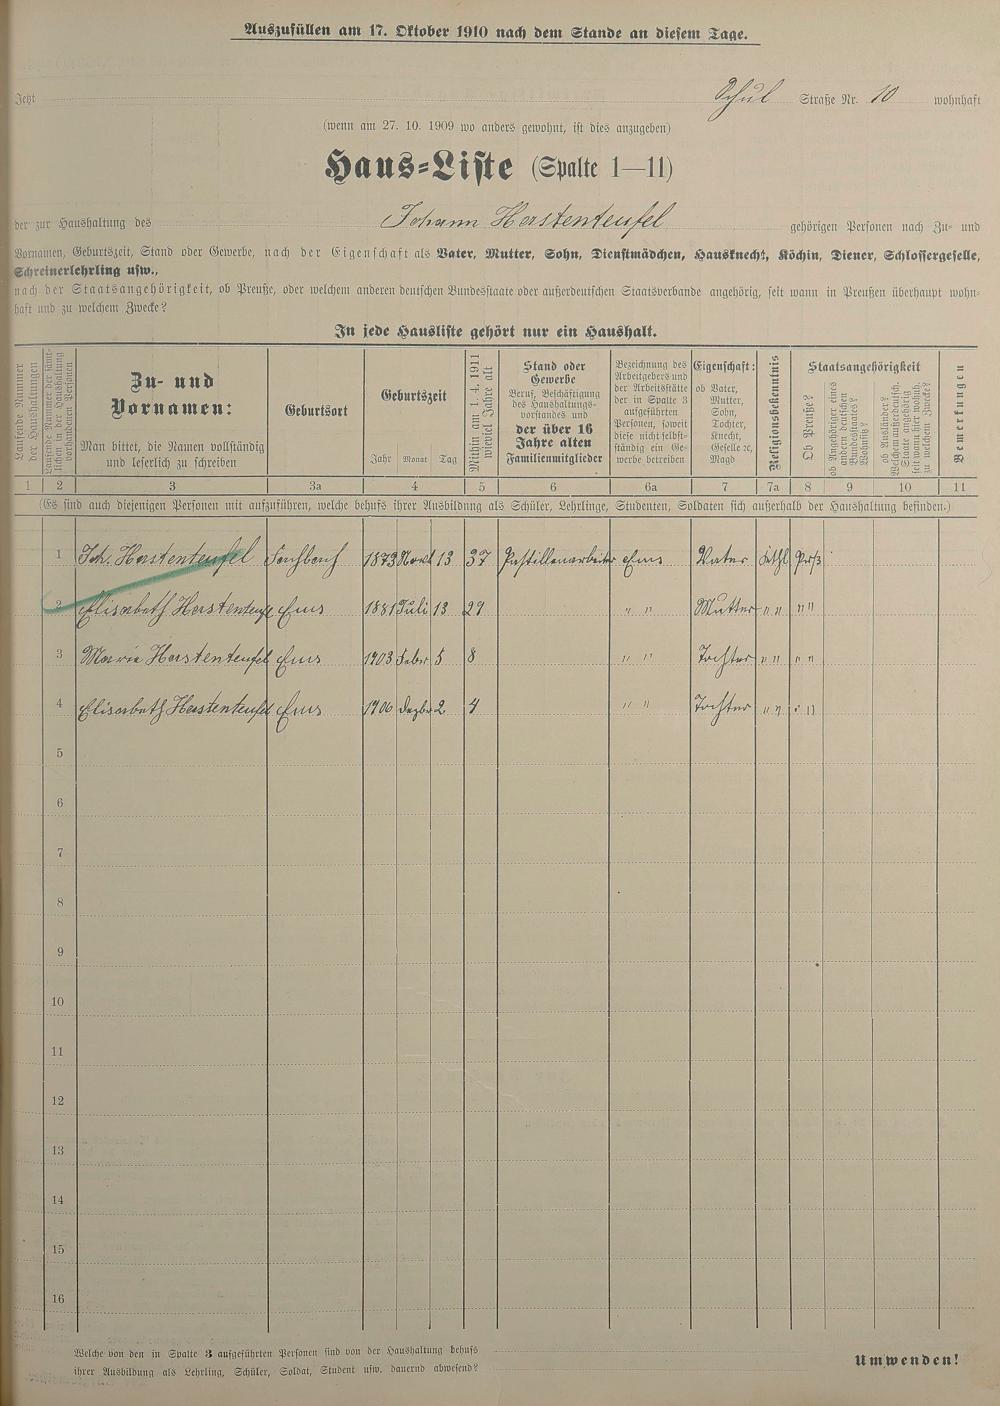 Auszufüllen am 17. Oktober 1910 nach dem Stande an diesem Tage.
Jetzt Schul Straße Nr. 10 wohnhaft
(wenn am 27. 10. 1909 wo anders gewohnt, ist dies anzugeben)
Haus-Liste (Spalte 1—11)
der zur Haushaltung des Johann Herstenteufel gehörigen Personen nach Zu- und
Vornamen, Geburtszeit, Stand oder Gewerbe, nach der Eigenschaft als Vater, Mutter, Sohn, Dienstmädchen, Hausknecht, Köchin, Diener, Schlossergeselle,
Schreinerlehrling usw.,
nach der Staatsangehörigkeit, ob Preuße, oder welchem anderen deutschen Bundesstaate oder außerdeutschen Staatsverbande angehörig, seit wann in Preußen überhaupt wohn-
haft und zu welchem Zwecke?
In jede Hausliste gehört nur ein Haushalt.
Laufende Nummer
der Haushaltungen
Laufende Nummer der sämt-
lichen in der Haushaltung
vorhandenen Personen
Zu- und
Vornamen:
Man bittet, die Namen vollständig
und leserlich zu schreiben
Geburtsort
Geburtszeit
Jahr Monat Tag
Mithin am 1. 4. 1911
wieviel Jahre alt
Stand oder
Gewerbe
Beruf, Beschäftigung
des Haushaltungs-
vorstandes und
der über 16
Jahre alten
Familienmitglieder
Bezeichnung des
Arbeitgebers und
der Arbeitsstätte
der in Spalte 3
aufgeführten
Personen, soweit
diese nicht selbst-
ständig ein Ge-
werbe betreiben
Eigenschaft:
ob Vater,
Mutter,
Sohn,
Tochter,
Knecht,
Geselle ec,
Magd
Religionsbekenntnis
Staatsangehörigkeit
Ob Preuße?
ob Angehöriger eines
andern deutschen
Bundesstaates?
Wohnsitz?
ob Ausländer?
Welchem außerdeutsch.
Staate angehörig
seit wann hier wohnh.
zu welchem Zwecke?
Bemerkungen
1 2 3 3a 4 5 6 6a 7 7a 8 9 10 11
(Es sind auch diejenigen Personen mit aufzuführen, welche behufs ihrer Ausbildung als Schüler, Lehrlinge, Studenten, Soldaten sich außerhalb der Haushaltung befinden.)
1 Joh. Herstenteufel 1873 Novb 13 37 Pastillenarbeiter Ems Vater Kathl Preß
2 Elisabeth Herstenteufel Ems 1881 Juli 13 29 " " Mutter " " " "
3 Maria Herstenteufel Ems 1903 Feber 5 8 " " Tochter " " " "
4 Elisabeth Herstenteufel Ems 1906 Dezbr 2 4 " " Tochter " " " "
5
6
7
8
9
10
11
12
13
14
15
16
Welche von den in Spalte 3 aufgeführten Personen sind von der Haushaltung behufs
ihrer Ausbildung als Lehrling, Schüler, Soldat, Student usw. dauernd abwesend?
Umwenden!